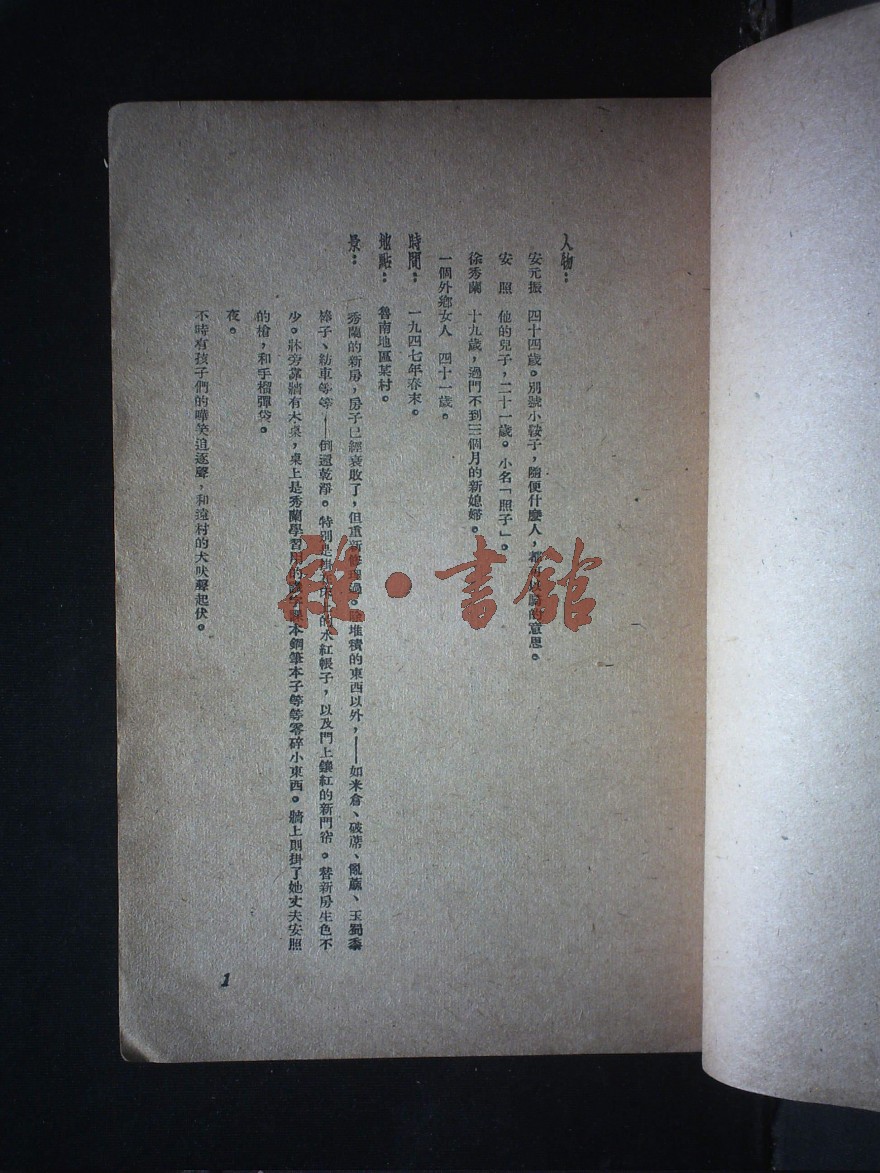 人物：
安元振　四十四歲。別號小鞍子，隨便什麼人，都可以騎的意思。
安　照　他的兒子，二十一歲。小名「照子」。
徐秀蘭　十九歲，過門不到三個月的新媳婦。
一個外鄉女人　四十一歲。
時間：　一九四七年春末。
地點：　魯南地區某村。
景：　秀蘭的新房，房子已經衰敗了，但重新修理過。堆積的東西以外，——如米倉、破蓆、亂蔴、玉蜀黍
棒子、紡車等等——倒還乾淨。特別是掛在床上的水紅帳子，以及門上鑲紅的新門帘。替新房生色不
少。牀旁靠牆有木桌，桌上是秀蘭學習用的識字課本鋼筆本子等等零碎小東西。牆上則掛了她丈夫安照
的槍，和手榴彈袋。
夜。
不時有孩子們的嘩笑追逐聲，和遠村的犬吠聲起伏。
1
雜·書館